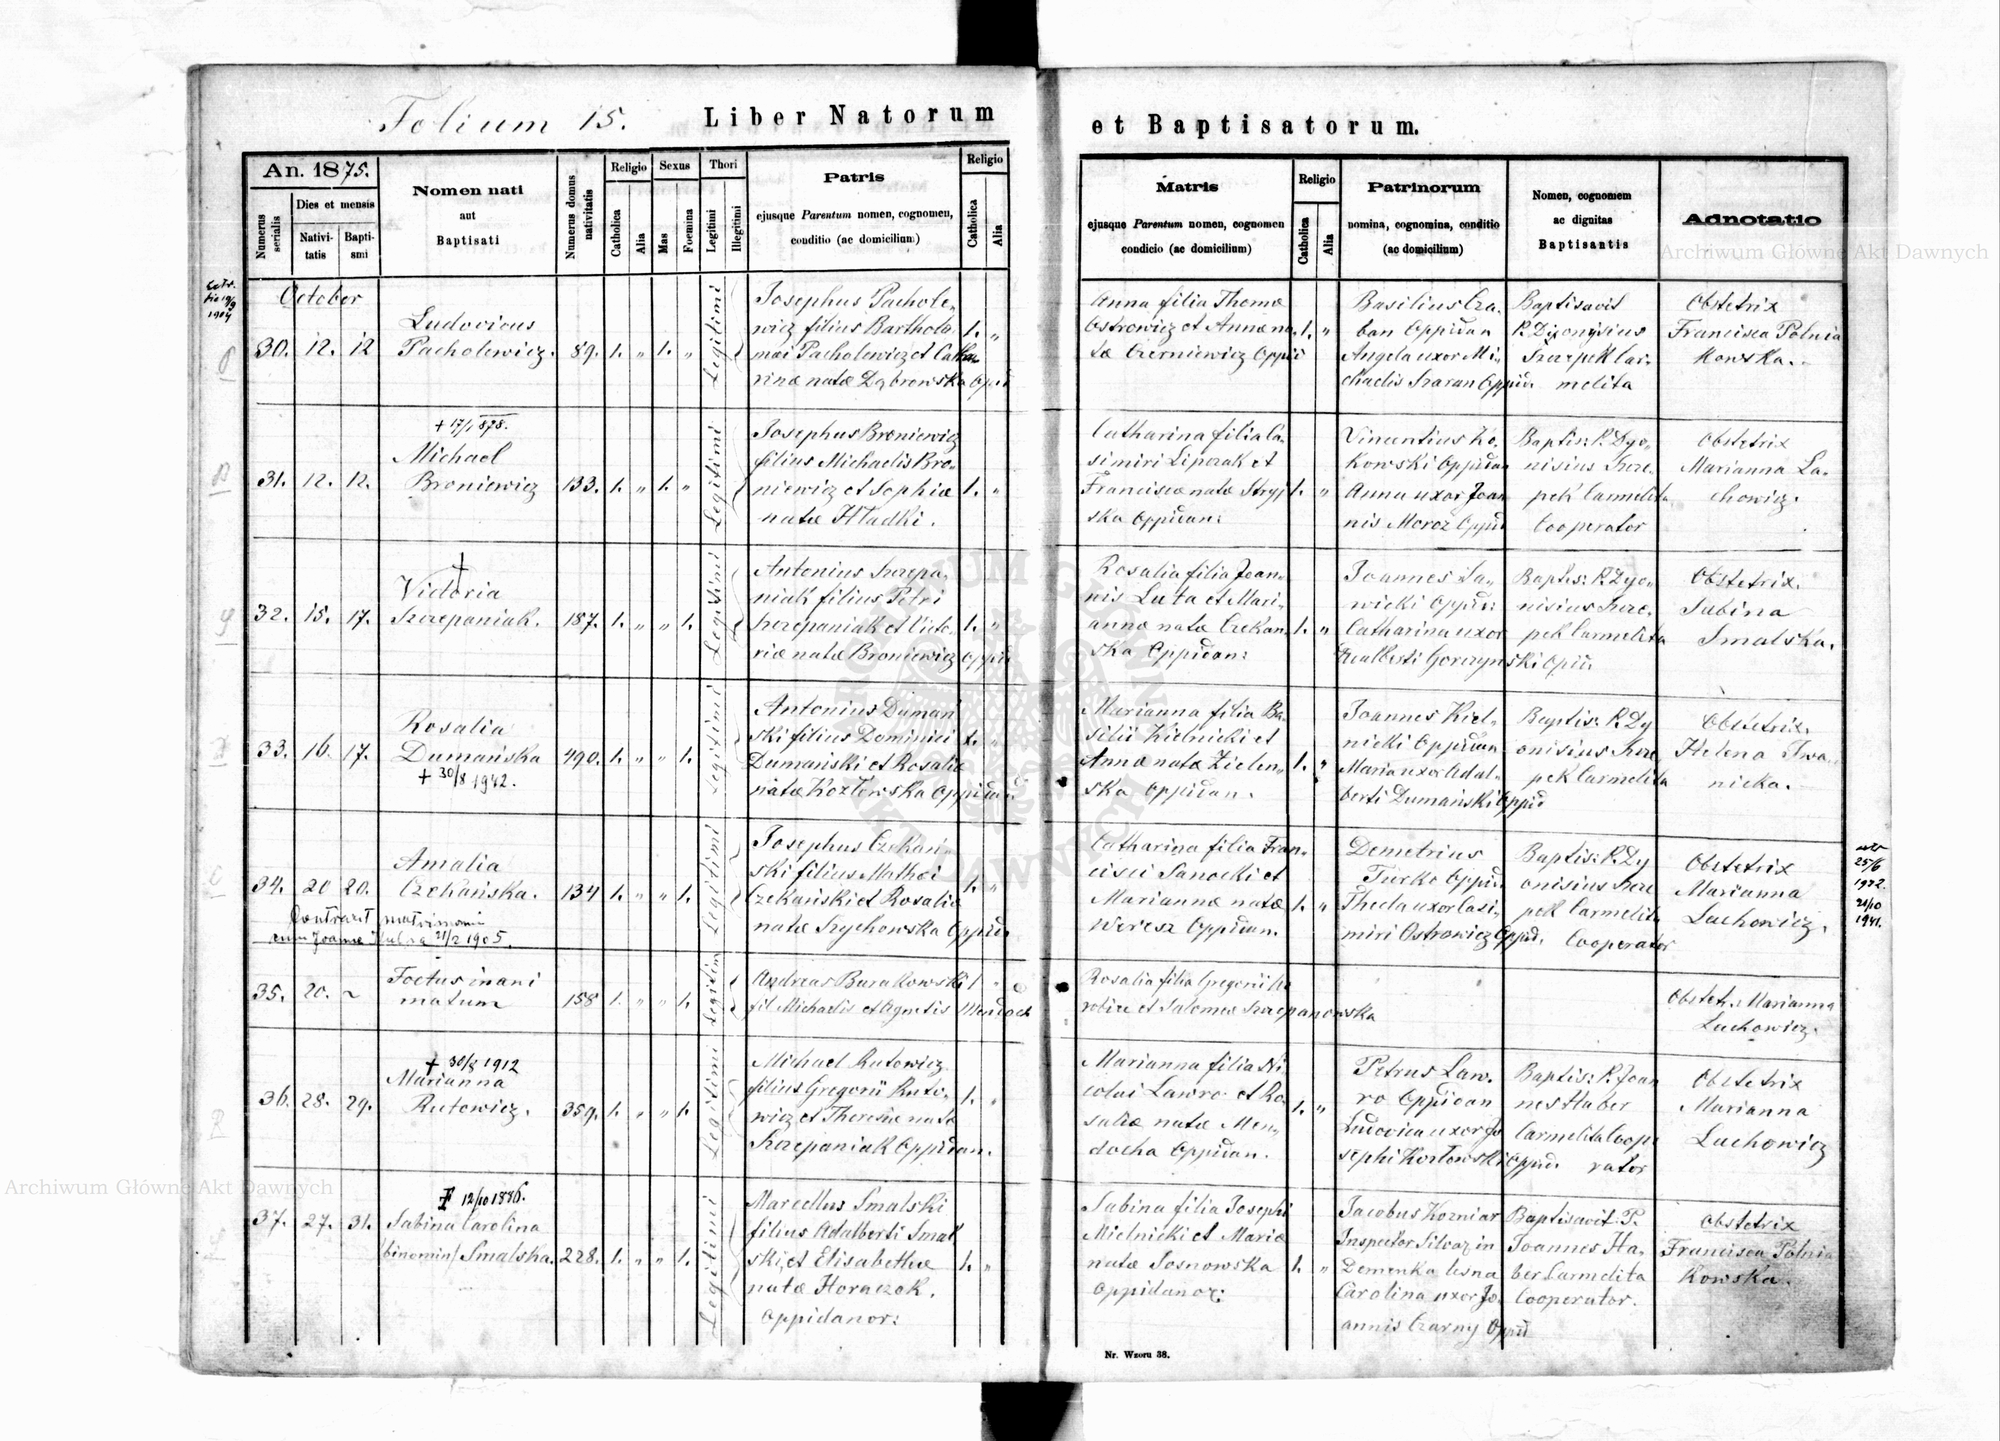 Folium 15.
Liber Natorum et Baptisatorum.
An. 1875.
Numerus serialis
Dies et mensis
Nativi-
tatis
Bapti-
smi
Nomen nati
aut
Baptisati
Numerus domus
nativitatis
Religio
Catholica
Alia
Sexus
Mas
Foemina
Thori
Legitimi
Illegitimi
Patris
ejusque Parentum nomen, cognomen,
conditio (ac domicilium)
Religio
Catholica
Alia
Matris
ejusque Parentum nomen, cognomen
condicio (ac domicilium)
Religio
Catholica
Alia
Patrinorum
nomina, cognomina, conditio
(ac domicilium)
Nomen, cognomem
ac dignitas
Baptisantis
Adnotatio
1904
October
30. 12. 12
Ludovicus
Pacholewicz.
89. 1. „ 1. „
Legitimi
Josephus Pachole-
wicz filius Bartholo
mæi Pacholewicz et Catha
rinæ natæ Dąbrowska Oppid
1. „
Anna filia Thomæ
Ostrowicz et Annæ na
tæ Czerniewicz Oppid
1. „
Basilius Cza-
ban Oppidan
Angela uxor Mi-
chaelis Szaran Oppid.
Baptisavit
P. Dyonysius
Szczepek Car-
melita
Obstetrix
Francisca Polnia
kowska.
31. 12. 12.
+ 17/1 878.
Michael
Broniewicz
133. 1. „ 1. „
Legitimi
Josephus Broniewicz
filius Michaelis Bro-
niewicz et Sophiæ
natæ Hładki.
1. „
Catharina filia Ca-
simiri Lipczak et
Franciscæ natæ Stryj
ska Oppidan:
1. „
Vincentius Ko-
kowski Oppidan
Anna uxor Joan
nis Moroz Oppid
Baptis: P. Dyo-
nisius Szcze-
pek Carmelita
Cooperator
Obstetrix
Marianna La-
chowicz.
32. 15. 17.
Victoria
Szczepaniak.
187. 1. „ „ 1.
Legitimi
Antonius Szczepa-
niak filius Petri
Szczepaniak et Victo-
riæ natæ Broniewicz Oppid
1. „
Rosalia filia Joan-
nis Luta et Mari-
annæ natæ Czekan-
ska Oppidan:
1. „
Joannes Sa-
wicki Oppid:
Catharina uxor
Adalberti Gorczynski Opid.
Baptis: P. Dyo-
nisius Szcze-
pek Carmelita
Obstetrix.
Sabina
Smalska.
33. 16. 17.
Rosalia
Dumańska
+ 30/8 1942.
490. 1. „ „ 1.
Legitimi
Antonius Dumań
ski filius Dominici
Dumański et Rosaliæ
natæ Kozłowska Oppidan.
1. „
Marianna filia Ba-
silii Kielnicki et
Annæ natæ Zielen-
ska Oppidan.
1. „
Joannes Kiel-
nicki Oppidan
Maria uxor Adal-
berti Dumański Oppid
Baptis: P. Dy
onisius Szcze
pek Carmelita
Obstetrix.
Helena Iwa-
nicka.
34. 20 20.
Amalia
Czekańska.
Contraxit matrimoni
cum Joanne 21/2 1905.
134 1. „ „ 1.
Legitimi
Josephus Czekań-
ski filius Mathæi
Czekański et Rosaliæ
natæ Szychowska Oppid.
1. „
Catharina filia Fran-
cisci Sanocki et
Mariannæ natæ
Weresz Oppidan.
1. „
Demetrius
Turko Oppid
Thecla uxor Casi-
miri Ostrowicz Oppid.
Baptis: P. Dy
onisius Szcze
pek Carmelita
Cooperator
Obstetrix
Marianna
Lachowicz.
25/6
1922.
21/10
1941.
35. 20. ~
Foetus inani
matum
158 1. „ „ 1.
Legitim
Andreas Burakowski
fil Michaelis et Agnetis Mendoch
1 „
Rosalia filia Gregorii
et Salomeæ Szczepanowska
Obstet.: Marianna
Lachowicz.
36. 28. 29.
+ 30/8 1912
Marianna
Rutowicz.
359. 1. „ „ 1.
Legitimi
Michael Rutowicz
filius Gregorii Ruto-
wicz et Theresiæ natæ
Szczepaniak Oppidan.
1. „
Marianna filia Ni
colai Lawro et Ro
saliæ natæ Men-
docha Oppidan.
1. „
Petrus Law-
ro Oppidan
Ludovica uxor Jo
sephi Kozłowski Oppid.
Baptis: P. Joan
nes Haber
Carmelita Coope
rator
Obstetrix
Marianna
Lachowicz
37. 27. 31.
12/10 1886.
Sabina Carolina
/binomin/ Smalska.
228. 1. „ „ 1.
Legitimi
Marcellus Smalski
filius Adalberti Smal
ski, et Elisabethæ
natæ Horaczek.
Oppidanor:
1. „
Sabina filia Josephi
Mielnicki et Mariæ
natæ Sosnowska
Oppidanor:
1. „
Jacobus Kozniar
Inspector Silvaz in
Demenka lesna
Carolina uxor Jo.
annis Czarny Oppid
Baptisavit P.
Joannes Ha-
ber Carmelita
Cooperator.
Obstetrix
Francisca Polnia
kowska.
Nr. Wzoru 38.
Archiwum Główne Akt Dawnych
Archiwum Główne Akt Dawnych
ARCHIWUM GŁÓWNE AKT DAWNYCH